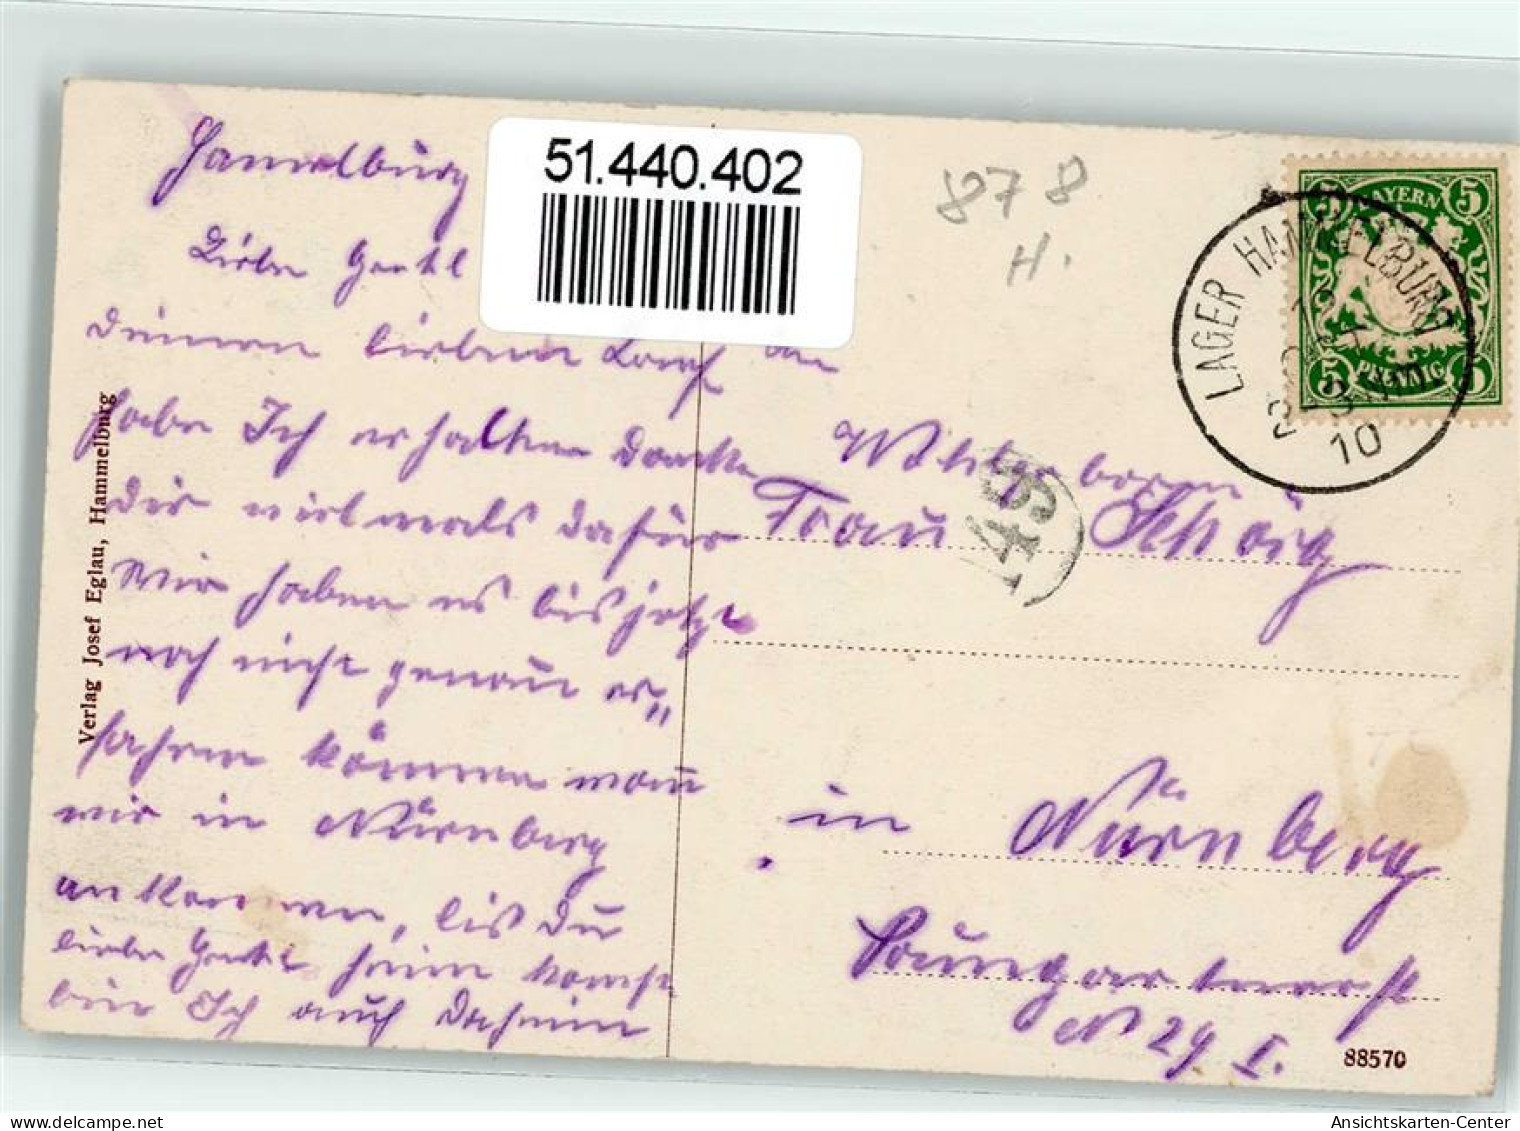 Hammelburg
Liebe Gretl
deinen lieben Brief
habe Ich erhalten danke
dir vielmals dafür
Wir haben es bis jetzt
noch nicht genau er„
fahren können wann
wir in Nürnberg
ankommen, bis du
liebe Gretl heim komst
bin Ich auch daheim
51.440.402
878
H.
LAGER HAMMELBURG
10
BAYERN
5 5
5 PFENNIG 5
149
Wohlgeboren
Frau
in Nürnberg
№ 29 I.
88570
Verlag Josef Eglau, Hammelburg
Ansichtskarten-Center